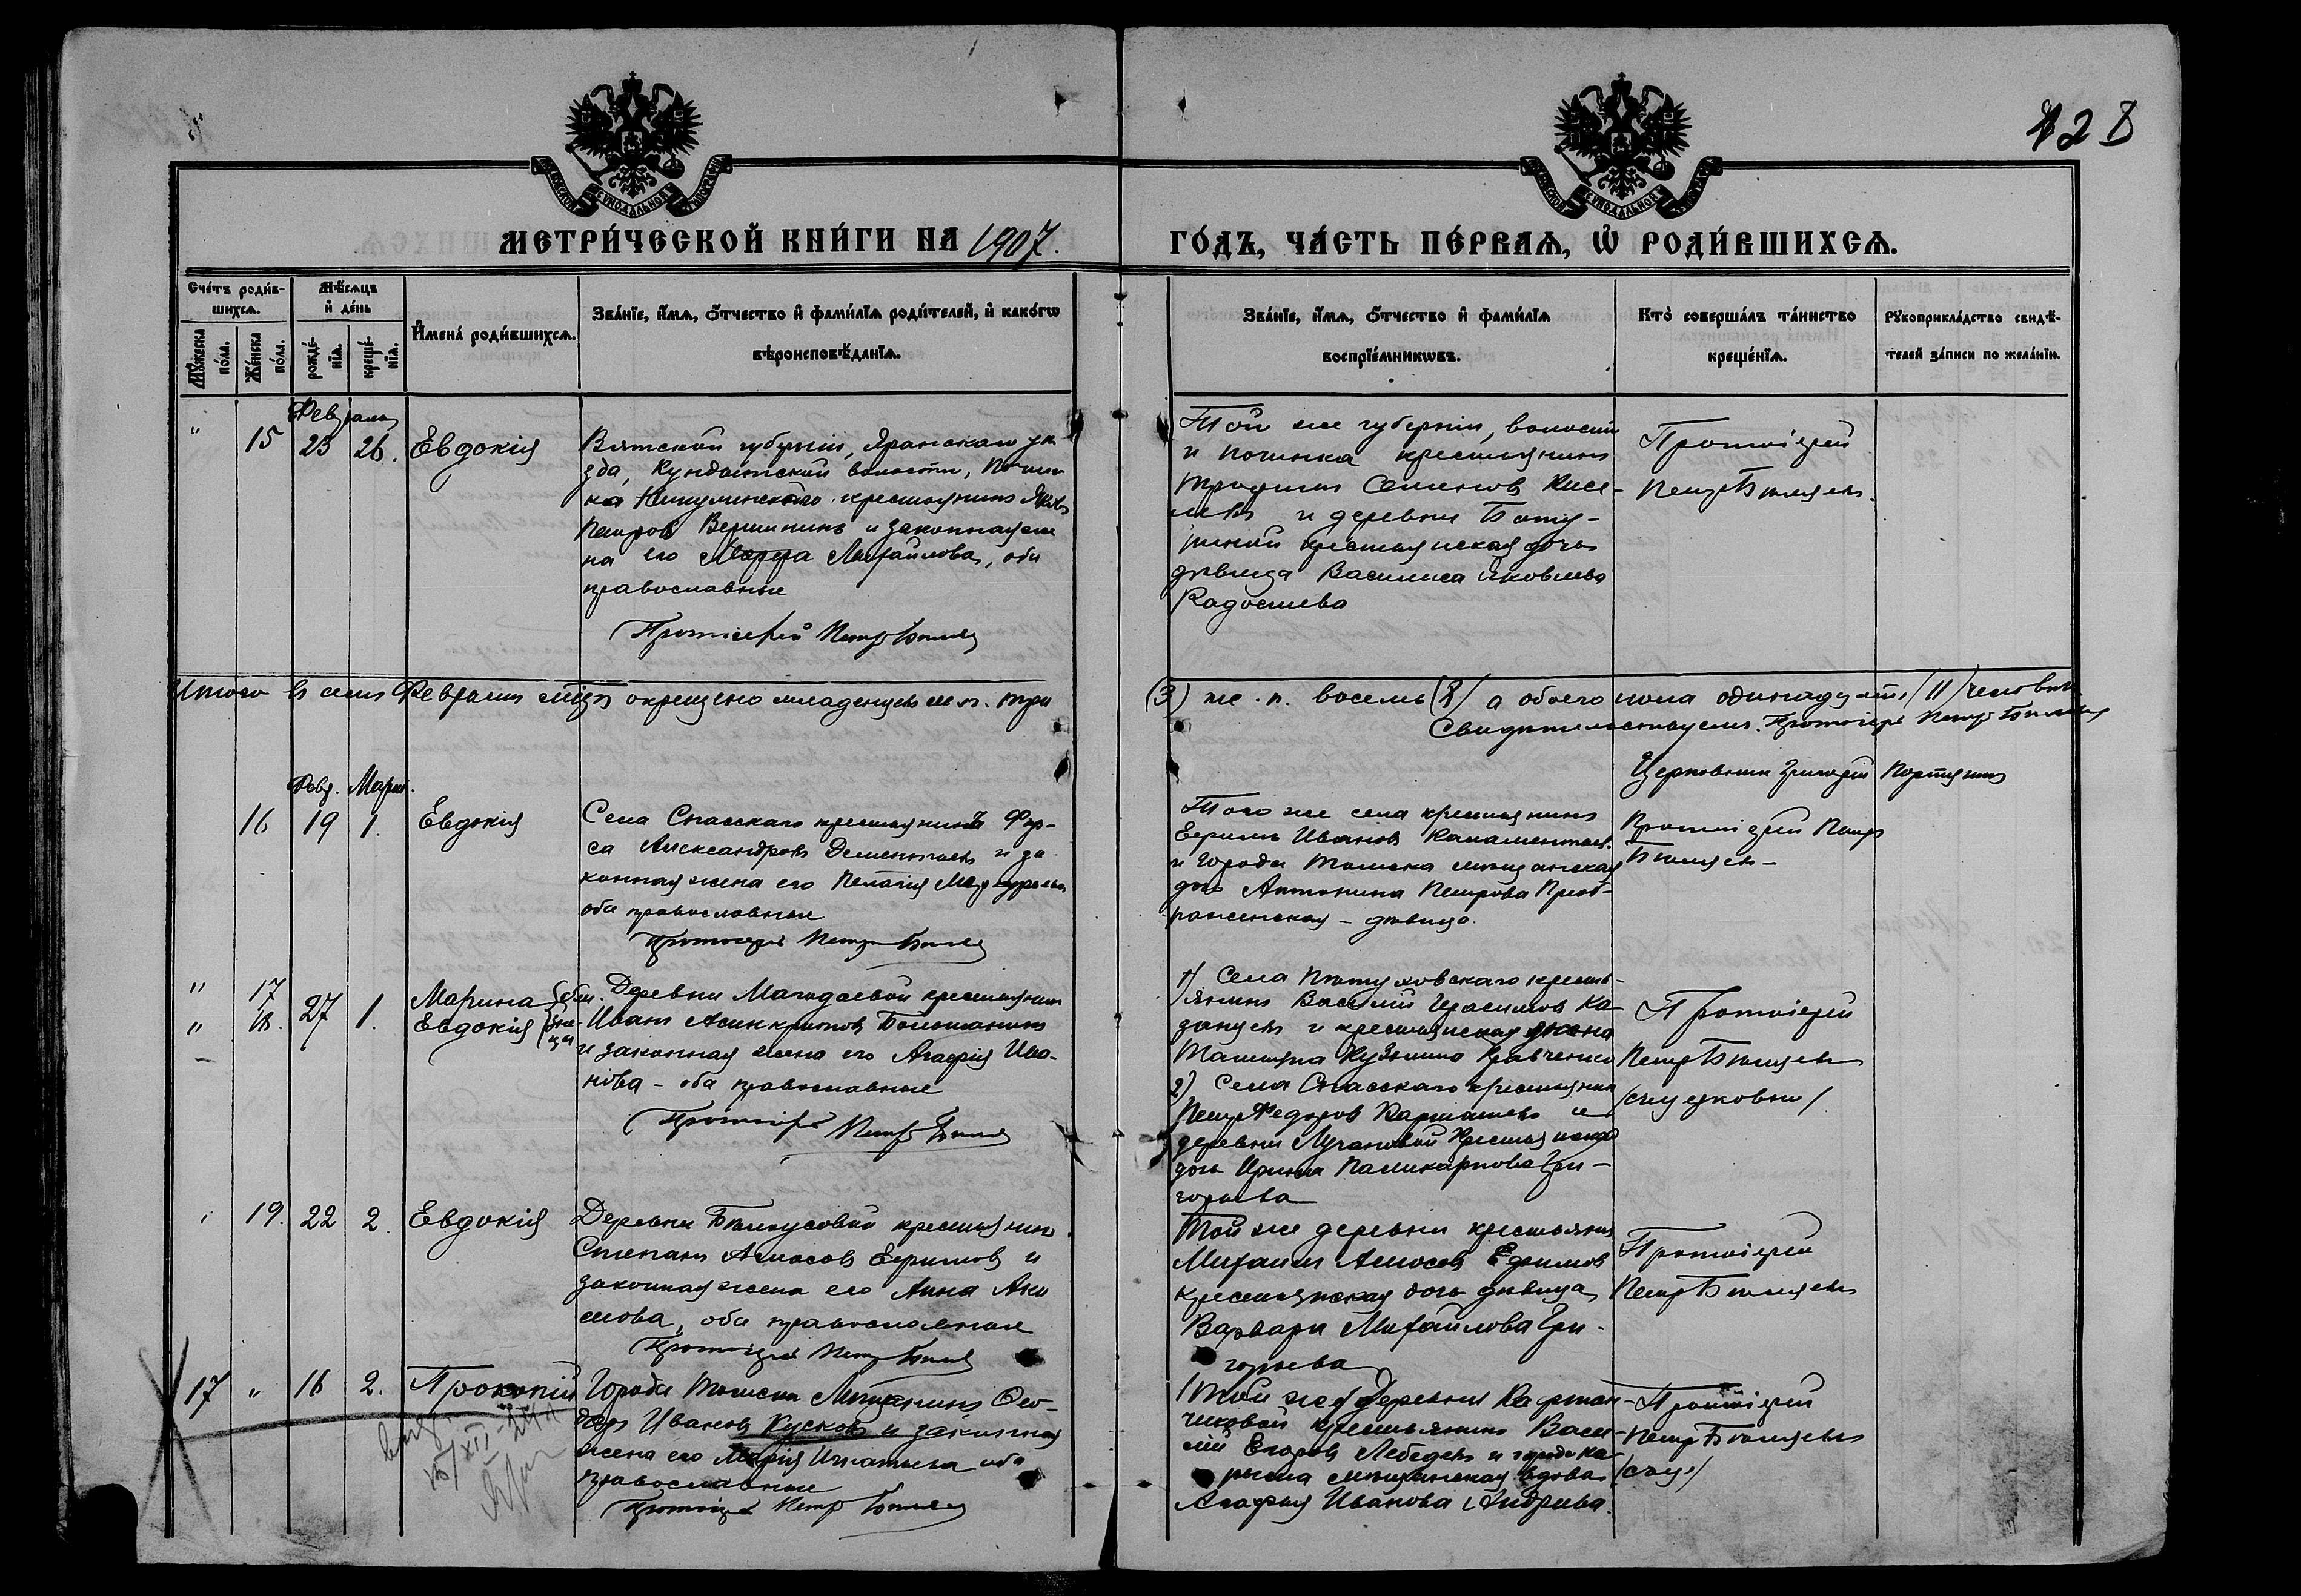 128
МЕТРИ́ЧЕСКОЙ КНИ́ГИ НА 1907.
ГО́ДЪ, ЧА́СТЬ ПЕ́РВАѦ, Ѡ҆ РОДИ́ВШИХСѦ.
Сче́тъ роди́в-
шихсѧ.
Мꙋ́жеска
по́ла.
Же́нска
по́ла.
Мѣ́сѧцъ
и҆ де́нь
рожде́-
нїѧ.
креще́-
нїѧ.
И҆мена̀ роди́вшихсѧ.
Зва́нїе, и҆́мѧ, ѻ҆́тчество и҆ фами́лїѧ роди́телей, и҆ како́гѡ
вѣроисповѣ́данїѧ.
Зва́нїе, и҆́мѧ, ѻ҆́тчество и҆ фами́лїѧ
воспрїе́мникѡвъ.
Кто̀ соверша́лъ та́инство
креще́нїѧ.
Рꙋкоприкла́дство свидѣ́-
телей за́писи по жела́нїю.
Февраль
" 15 23 26. Евдокія
Вятской губерніи, Яранскаго уѣ
зда, волости, Почин
ка крестьянинъ Яковъ
Петровъ Вершининъ и законная же
на его Марфа Михайлова, оба
православные
Протоіерей Петръ
Той же губерніи, волости
и починка крестьянинъ
Трофимъ Семеновъ Кисе-
левъ и деревни Бату-
риной крестьянская дочь
дѣвица Василиса Яковлева
Протоіерей
Петръ
Итого въ семъ Февралѣ мцѣ окрещено младенцевъ м.п. три
(3) ж. п. восемь (8) а обоего пола одинадцать (11) человѣкъ
Свидѣтельствуемъ: Протоіерей Петръ
Церковникъ Григорій
Февр. Мартъ.
16 19 1. Евдокія
Села Спасскаго крестьянинъ Фир-
са Александровъ Дементьевъ и за
конная жена его Пелагія
оба православные
Протоіерей Петръ
Того же села крестьянинъ
Ефимъ Ивановъ
и города Томска мѣщанская
дочь Антонина Петрова Преоб-
раженская - дѣвица.
Протоіерей Петръ
" 17 27 1. Марина
" 18. Евдокія
близ-
не-
цы
Деревни Магадаевой крестьянинъ
Иванъ Асинкритовъ
и законная жена его Агафія Ива-
нова - оба православные
Протоіерей Петръ
1) Села Пѣтуховскаго кресть-
янинъ Василій Герасимовъ Ка-
занцевъ и крестьянская жена
Кузьмина Кравченко
2) Села Спасскаго крестьянинъ
Петръ Федоровъ Карташевъ и
деревни Лучановой Крестьянская
дочь Ирина Паликарпова Гри-
горьева
Протоіерей
Петръ
19. 22 2. Евдокія
Деревни крестьянинъ
Степанъ Амосовъ Ефимовъ и
законная жена его Анна Аки
мова, оба православные
Протоіерей Петръ
Той же деревни крестьянинъ
Михаилъ Амосовъ Ефимовъ
крестьянская дочь дѣвица
Варвара Михайлова Гри-
горьева
Протоіерей
Петръ
17 " 16 2. Прокопій
Города Томска Мѣщанинъ Ѳео-
доръ Ивановъ Кусковъ и законная
жена его Марія Игнатьева оба
православные
Протоіерей Петръ
деревни
крестьянинъ Васи-
лій Егоровъ Лебедевъ и города На
рыма мѣщанская вдова
Агафья Иванова Андреева.
Протоіерей
Петръ